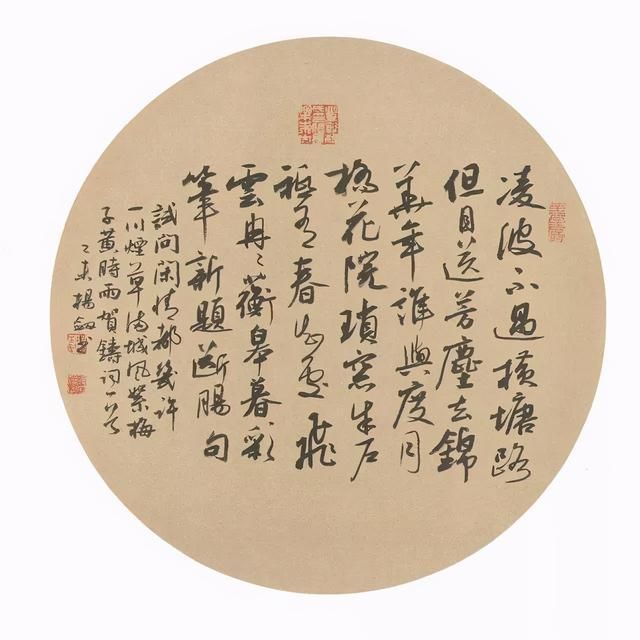 凌波不過橫塘路
但目送芳塵去錦
華年誰與度月
橋花院瑣窗朱戶
祗有春知處飛
雲冉〻蘅皋暮彩
筆新題斷腸句
試問閑情都幾許
一川煙草滿城風絮梅
子黃時雨賀鑄詞一首
楊劍書